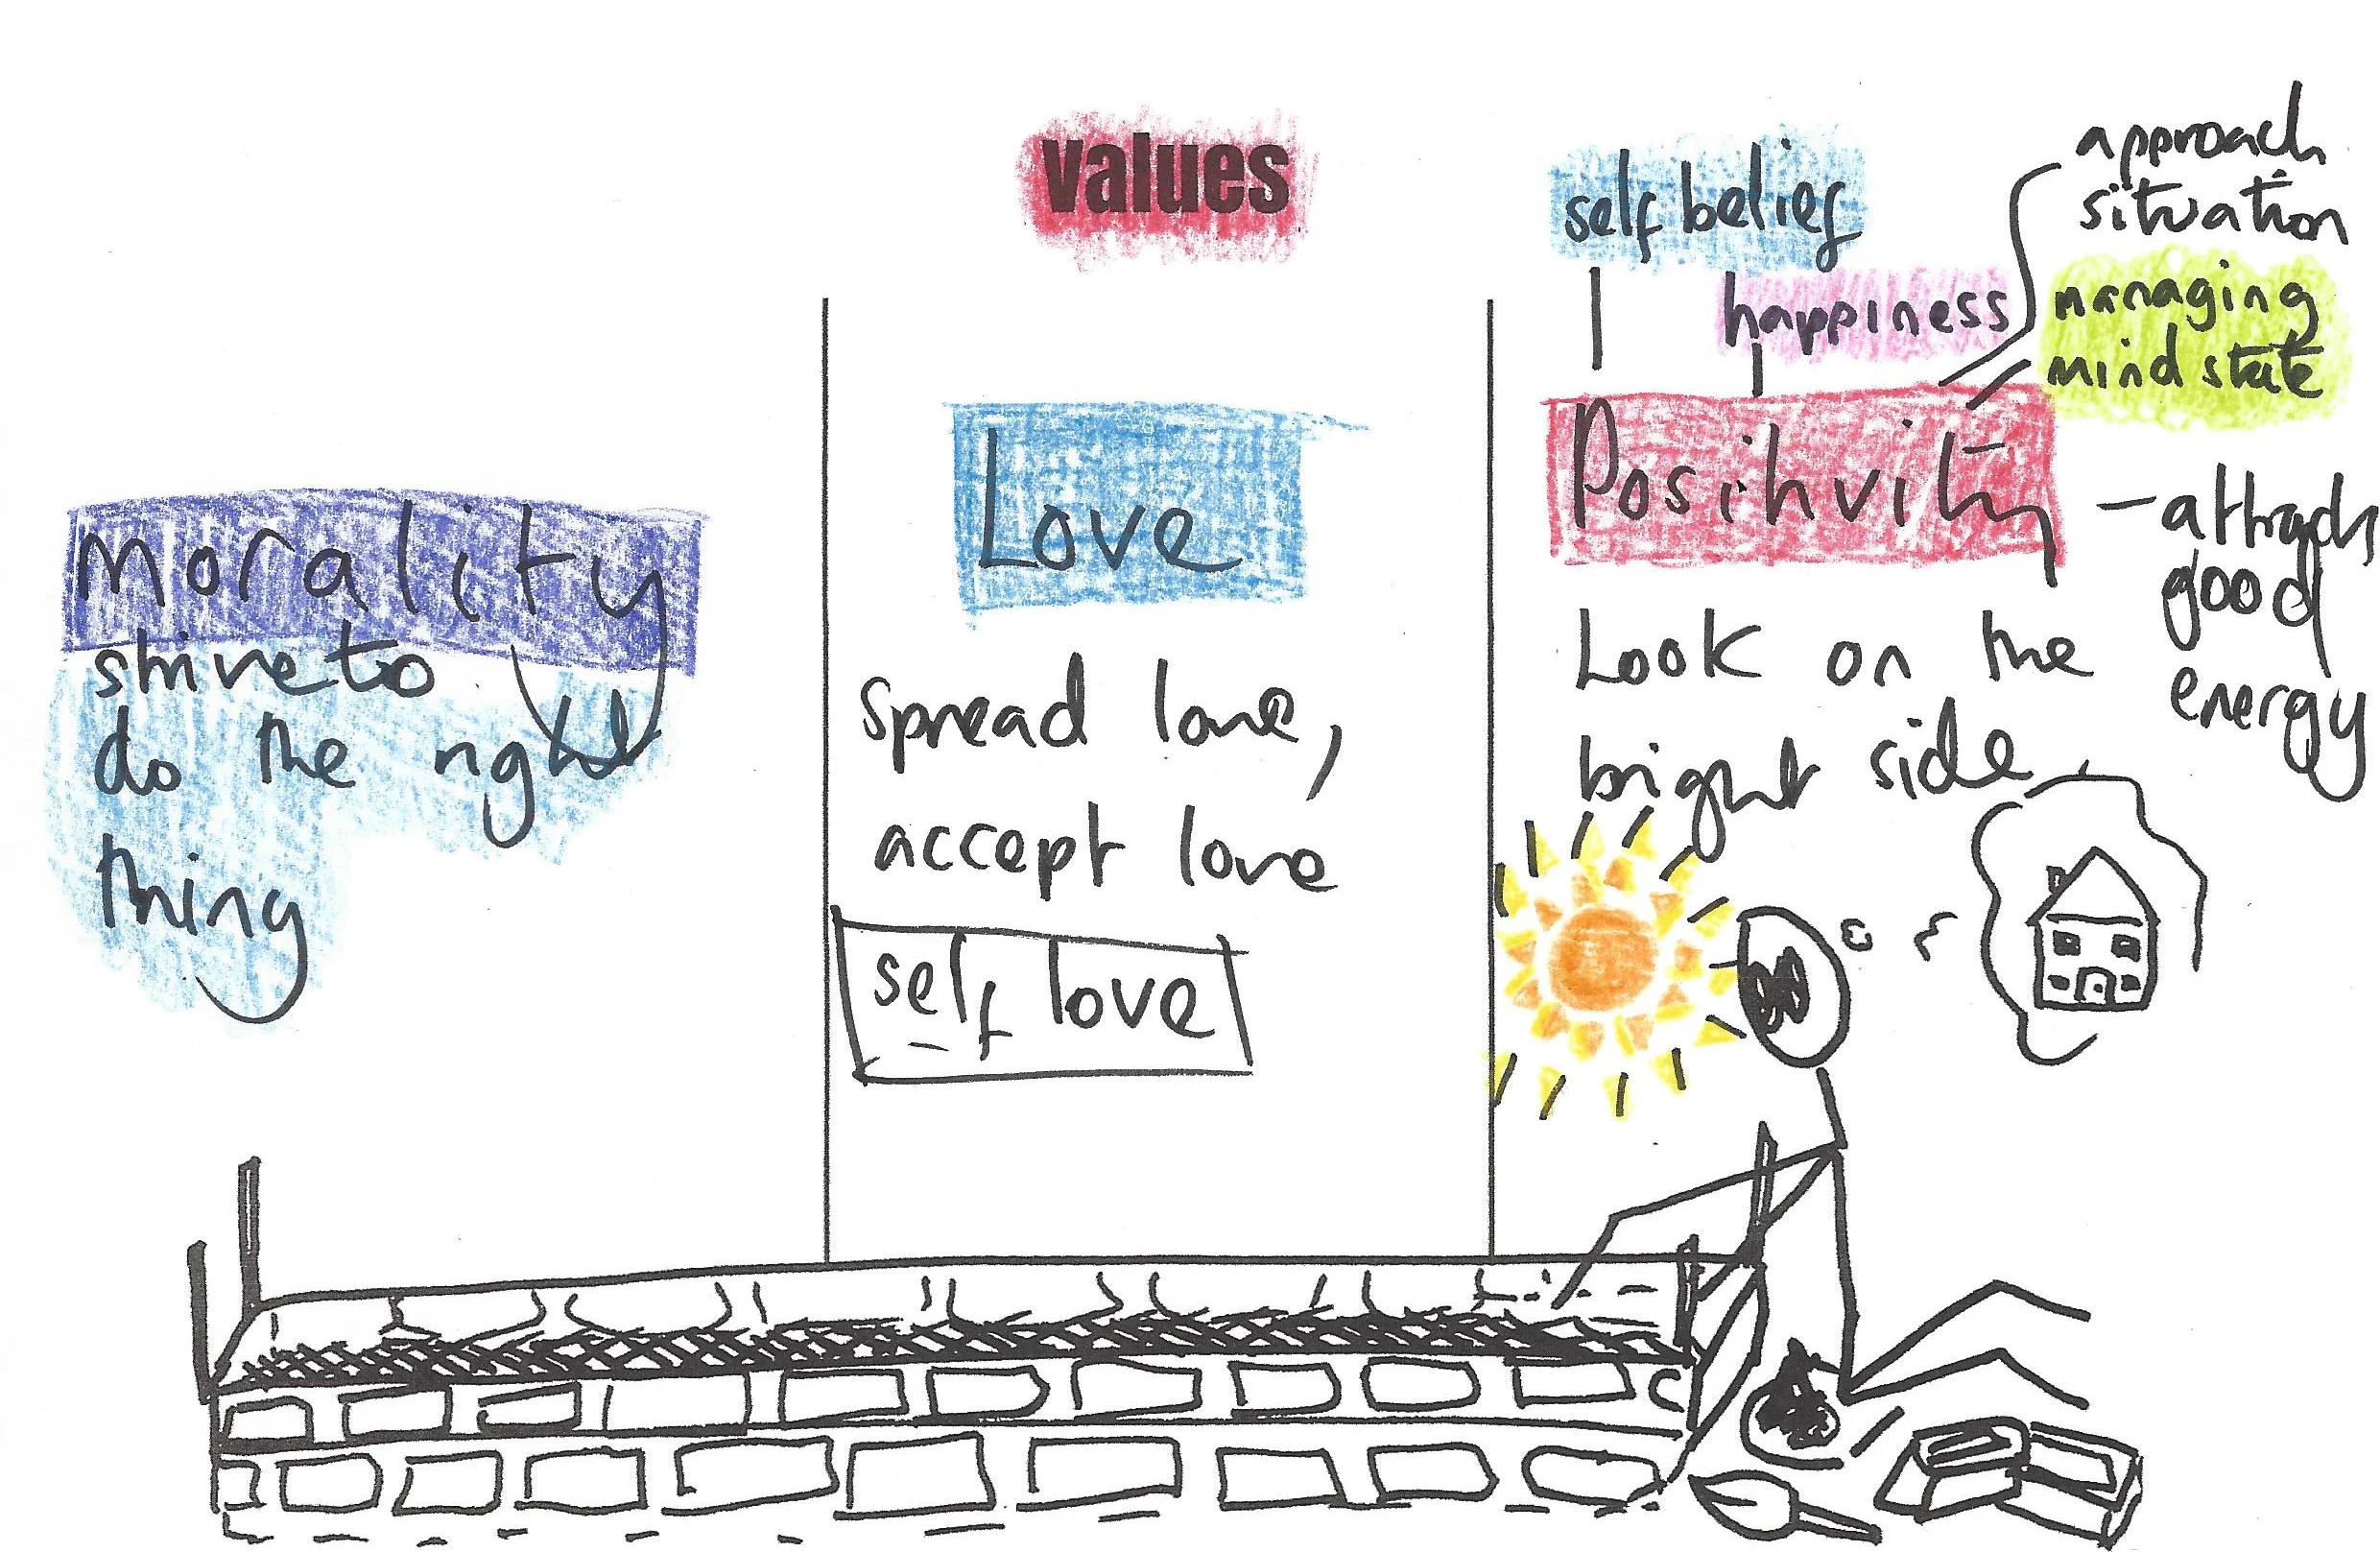 values
morality
strive to
do the right
thing
Love
spread love,
accept love
self love
self belief
happiness
approach
situation
managing
mind state
Positivity
- attracts
good
energy
Look on the
bright side